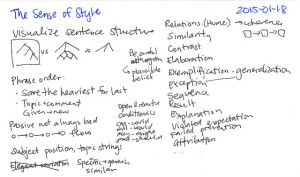 The Sense of Style
2015-01-18
Visualize sentence structure
vs
Be careful
attraction
plausible
belief
Phrase order:
• Save the heaviest for last
• Topic → comment
Given → new
Passive not always bad
flow
open & remote
conditionals
can-could
will-would
may-might
shall-should
Subject position, topic strings
Elegant variation Specific → generic,
similar
Relations: (Hume) → coherence
Similarity
Contrast
Elaboration
Exemplification - generalization
Exception
Sequence
Result
Explanation
Violated expectation
Failed prevention
Attribution
...